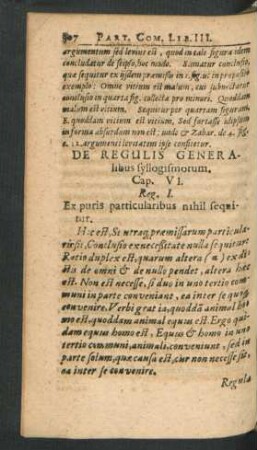 PART. COM. LIB. III.
argumentum sed levius est, quod in tali figura idem
concludatur de seipso, hoc modo. Sumatur conclusio,
que sequitur ex ijsdem præmissis in 1. fig. ut in proposito
exemplo: Omne vitium est malum, cui subnectatur
conclusio in quarta fig. collecta pro minori, Quoddam
malum est vitium. Sequitur per quartam figuram
E. quoddam vitium est vitium. Sed fortasse
in forma absurdum non est: unde & Zabar. de 4. fig.
c. 11. argumenti levitatem ipse confitetur.
DE REGULIS GENERA-
libus syllogismorum.
Cap. VI.
Reg. I.
Ex puris particularibus nihil sequi-
tur.
Hæc est, Si utraq; præmissarum particula-
ris sit, Conclusio ex necessitate nulla sequitur.
Ratio duplex est, quarum altera ex di-
cto de omni & de nullo pendet, altera hæc
est. Non est necesse, si duo in uno tertio com-
muni in parte conveniant, ea inter se quoq;
convenire. Verbi gratia, quoddā animal ho-
mo est, quoddam animal equus est. Ergo qui-
dam equus homo est, Equus & homo in uno
tertio communi, animali, conveniunt, sed in
parte solum, quæ causa est, cur non necesse sit
ea inter se convenire.
Regula